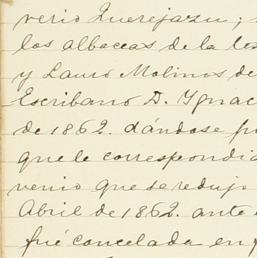 verio Querejazu;
los albaceas de la tes
y Lauro Molinos de
Escribano D. Ygnac
de 1862. dándose po
que le correspondia
venio que se redujo
Abril de 1862. ante
fué cancelada en